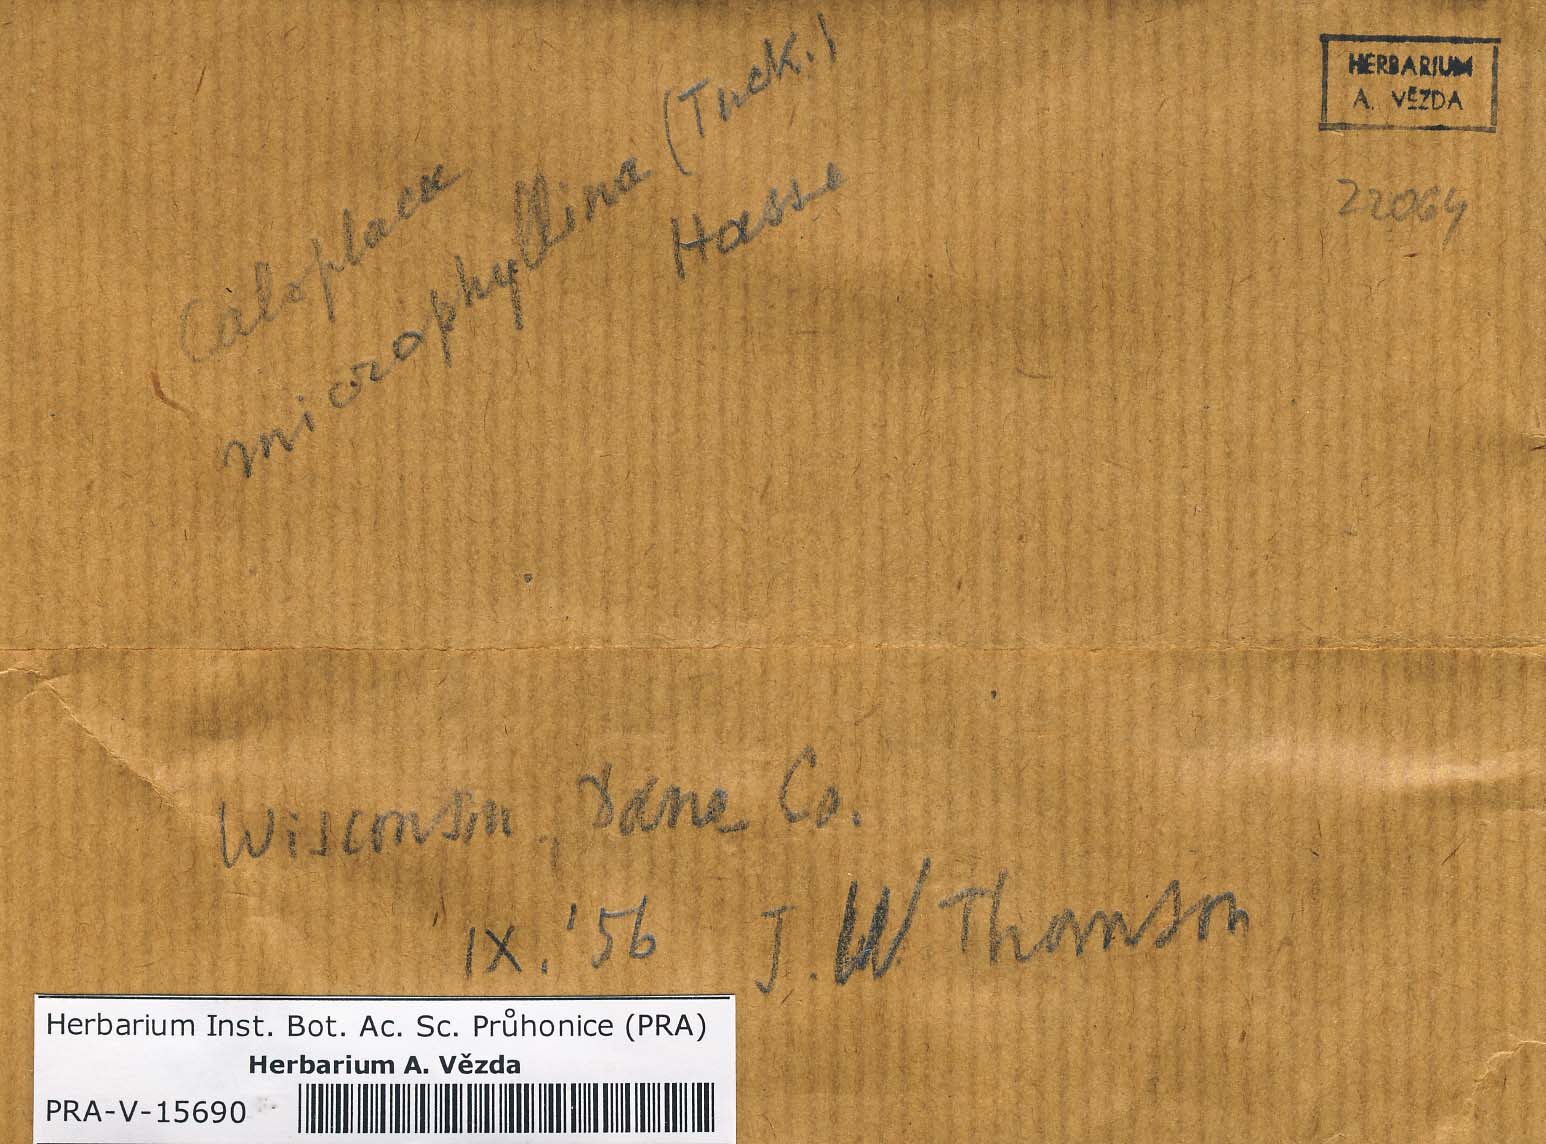 HERBARIUM
A. VĚZDA
22064
Caloplaca
microphyllina (Tuck.)
Hasse
Wisconsin, Dane Co.
IX. '56 J. W. Thomson
Herbarium Inst. Bot. Ac. Sc. Průhonice (PRA)
Herbarium A. Vězda
PRA-V-15690